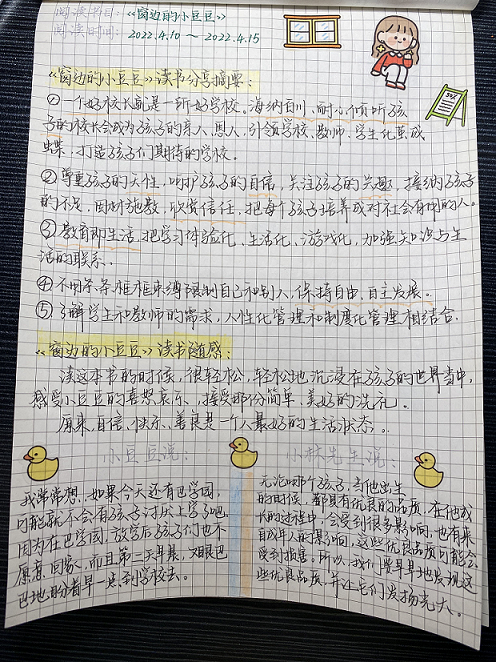 阅读书目:《窗边的小豆豆》
阅读时间: 2022.4.10 ~ 2022.4.15
《窗边的小豆豆》读书分享摘要:
①一个好校长就是一所好学校。海纳百川、耐心倾听孩
子的校长会成为孩子的亲人、恩人,引领学校、教师、学生化茧成
蝶,打造孩子们期待的学校。
②尊重孩子的天性,呵护孩子的自信,关注孩子的兴趣,接纳孩子
的不足,因材施教,欣赏信任,把每个孩子培养成对社会有用的人。
③教育即生活,把学习体验化、生活化、游戏化,加强知识与生
活的联系。
④不用条条框框束缚限制自己和别人,保持自由、自主发展。
⑤了解学生和教师的需求,人性化管理和制度化管理相结合.
《窗边的小豆豆》读书随感:
读这本书的时候,很轻松,轻松地沉浸在孩子的世界当中,
感受小豆豆的喜怒哀乐,接受那份简单、美好的洗礼。
原来,自信、快乐、善良是一个人最好的生活状态。
小豆豆说:
我常常想,如果今天还有巴学园,
可能就不会有孩子讨厌上学了吧。
因为在巴学园,放学后孩子们也不
愿意回家,而且第二天早晨,又眼巴
巴地盼着早一些到学校去。
小林先生说:
无论哪个孩子,当他出生
的时候,都具有优良的品质。在他成
长的过程中,会受到很多影响,也有来
自成年人的影响,这些优良品质可能会
受到损害。所以,我们要早早地发现这
些优良品质,并让它们发扬光大。